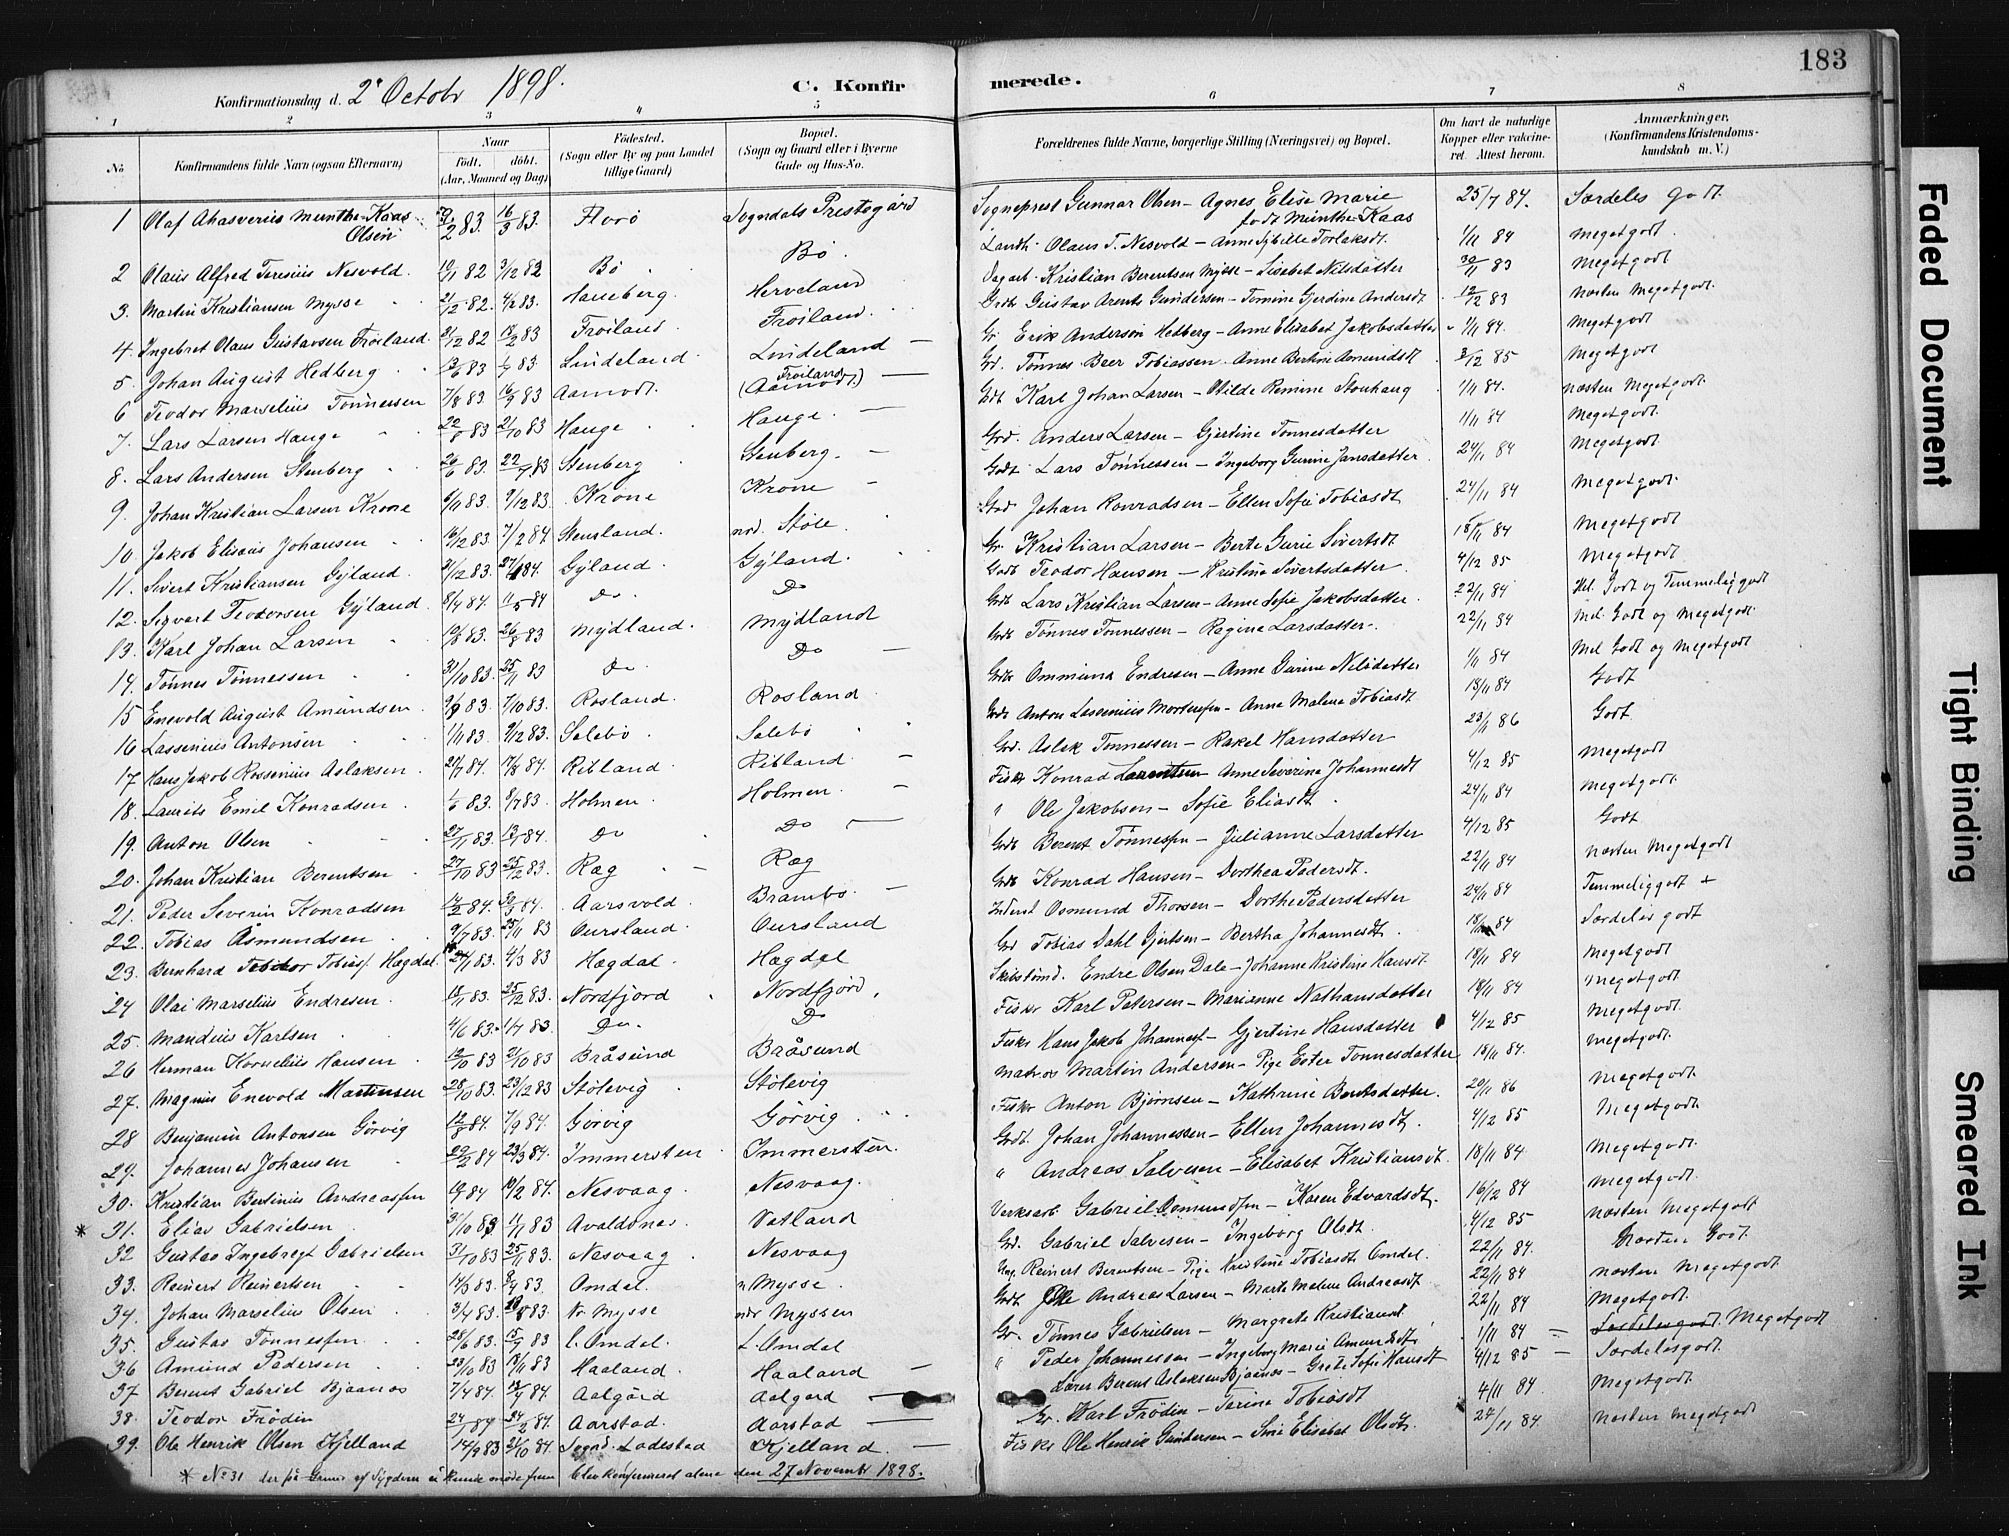 183
Konfirmationsdag d. 2 Octobr 1898.
C. Konfirmerede.
1 2 3 4 5 6 7 8
No
Konfirmandens fulde Navn (ogsaa Efternavn)
Naar
født. døbt.
(Aar, Maaned og Dag)
Fødested.
(Sogn eller By og paa Landet tillige Gaard)
Bopæl.
(Sogn og Gaard eller i Byerne Gade og Hus-No.
Forældrenes fulde Navne, borgerlige Stilling (Næringsvei) og Bopæl.
Om havt de naturlige Kopper eller vakcineret. Attest herom.
Anmærkninger.
(Konfirmandens Kristendomskundskab m. V.)
1 Olaf Ahasverius Munthe-Kaas Olsen 83. 16/3 83. Florø Sogndals Prestegård Sogneprest Gunnar Olsen - Agnes Elise Marie født Munthe-Kaas 25/7 84. Særdeles godt.
2 Olaus Alfred Teresius Nesvold. 82 82 Bø Bø. Olaus T. Nesvold - Anne Sybille Torlaksdt. 1/11 84 Megetgodt.
3. Martin Kristiansen Mysse 21/12 82. 83. Haneberg. Herveland Dagarb. Kristian Berentsen Mysse - Lisabet Nilsdatter 30/11 83 Megetgodt
4 Ingebret Olaus Gustavsen Frøiland. 31/12 82 83 Frøiland. Frøiland. Gustav Arents Gundersen - Tomine Gjerdine Andersdt. 12/12 83 næsten Megetgodt.
5. Johan August Hedberg 83 83. Lindeland Lindeland Erik Anderson Hedberg - Anne Elisabet Jakobsdatter 1/11 84. Megetgodt
6 Teodor Marselius Tønnessen 7/8 83. 16/9 83 Aamodt. Frøiland (Aamodt.) Tønnes Beer Tobiassen - Anne Bertine Amundsdt 85 Megetgodt
7. Lars Larsen Hauge 83 21/10 83 Hauge Hauge. Karl Johan Larsen - Otilde Remine Stenhaug 1/11 84. næsten Megetgodt.
8. Lars Andersen Stenberg 83. 22/7 83 Stenberg Stenberg. Anders Larsen - Gjertine Tønnesdatter 1/11 84 Megetgodt.
9. Johan Kristian Larsen Krone 6/11 83 9/12 83. Krone Krone Lars Tønnessen - Ingeborg Gurine Jansdatter. 24/11 84 Megetgodt
10. Jakob Elisæus Johansen 16/12 83. 7/2 84. Stensland. nrd. Støle. Johan Konradsen - Ellen Sofie Tobiasdt 24/11 84 Megetgodt.
11. Sivert Kristiansen Gyland. 31/12 83. 27/1 84. Gyland. Gyland. Kristian Larsen - Berte Gurie Sivertsdt. 18/11 84 Megetgodt
12. Sigvart Teodorsen Gyland. 8/4 84. 11/5 84 Do. Do Teodor Hansen - Kristine Sivertsdatter. 4/12 85 Megetgodt.
13. Karl Johan Larsen 83. 26/8 83 Mydland. Mydland Lars Kristian Larsen - Anne Sofie Jakobsdatter. 22/11 84 Mel. Godt og Temmeliggodt
14. Tønnes Tønnessen 31/10 83. 25/11 83 Do. Do Tønnes Tønnessen - Regine Larsdatter. 22/11 84 Mel. Godt og Megetgodt.
15 Enevold August Amundsen. 9/9 83. 7/10 83. Rosland. Rosland. Ommund Endresen - Anne Gurine Nilsdatter 1/11 84 Mel Godt og Megetgodt
16 Lassenius Antonsen 1/11 83. 9/12 83. Selebø. Selebø Anton Lassenius Mortensen - Anne Malene Tobiasdt 18/11 84 Godt
17 Hans Jakob Rossenius Aslaksen. 84. 84. Ribland. Ribland. Aslak Tønnessen - Rakel Hansdatter 23/11 86 Godt
18. Laurits Emil Konradsen 83. 8/7 83. Holmen. Holmen. Fisker Konrad Larentsen - Anne Severine Johannesdt 4/12 85 Megetgodt
19. Anton Olsen 27/11 83. 13/1 84. Do Do " Ole Jakobsen - Sofie Eliasdt. 24/11 84 Megetgodt.
20. Johan Kristian Berentsen 27/10 83 25/12 83. Ræg Ræg Berent Tønnessen - Julianne Larsdatter 4/12 85 Godt
21. Peder Severin Konradsen 84. 84. Aarsvold. Brambo. Konrad Hansen - Dorthea Pedersdt. 22/11 84 næsten Megetgodt
22. Tobias Åsmundsen 9/7 83. 25/11 83 Oursland. Oursland Inderst Osmund Thorsen - Dorthe Pedersdatter 24/11 84 Temmeliggodt +
23. Bernhard Teodor Tobias. Hægdal. 83. 4/3 83 Hægdal. Hægdal Tobias Dahl Gjertsen - Bertha Johannesdt. 18/11 84 Særdeles godt
24 Olai Marselius Endresen. 83. 25/12 83. Nordfjord Nordfjord. Endre Olsen Dale - Johanne Kristine Hansdt. 18/11 84 Megetgodt
25. Mandius Karlsen 4/6 83. 1/7 83. Do. Do Fisker Karl Petersen - Marianne Nathansdatter 18/11 84 Megetgodt
26 Herman Kornelius Hansen 12/10 83 21/10 83 Bråsund Bråsund Fisker Hans Jakob Johannes. - Gjertine Hansdatter 4/12 85 Megetgodt.
27. Magnus Enevold Martinsen 28/10 83. 23/12 83 Stølevig Stølevig Matros Martin Andersen - Pige Ester Tønnesdatter 18/11 84. Megetgodt.
28 Benjamin Antonsen Gørvig 12/8 84. 7/9 84. Gørvig Gørvig Fisker Anton Bjørnsen - Kathrine Berntsdatter. 20/11 86 Megetgodt
29. Johannes Johansen 84 23/3 84. Immersten Immersten. Johan Johannessen - Ellen Johannesdt. 4/12 85 Megetgodt.
30. Kristian Bertinius Andreassen 84 10/2 84. Nesvaag. Nesvaag. " Andreas Salvesen - Elisabet Kristiansdt. 18/11 84 Megetgodt.
* 31. Elias Gabrielsen 83 83 Avaldsnes. Vatland Verksarb Gabriel Osmundsen - Karen Edvardsdt. 16/12 84 Megetgodt.
32 Gustav Ingebregt Gabrielsen 31/10 83 25/11 83. Nesvaag. Nesvaag Gabriel Salvesen - Ingeborg Olsdt. 4/12 85 næsten Megetgodt
33. Reinert Reinertsen 14/3 83. 83. Omdal. n Mysse. Ung. Reinert Berentsen - Pige Kristine Tobiasdt Omdal. 22/11 84. Næsten Godt.
34. Johan Marselius Olsen 3/4 83. 83. Nr. Mysse ndr Myssen Ole Andreas Larsen - Marte Malene Andreasdt 22/11 84 næsten Megetgodt
35. Gustav Tønnessen. 28/6 83. 83 l. Omdal. L. Omdal Tønnes Gabrielsen - Margrete Kristiansd. 22/11 84 Megetgodt.
36 Amund Pedersen 23/10 83 83 Haaland. Haaland " Peder Johannessen - Ingeborg Marie Amundsdt. 1/11 84 - Særdelesgodt. Megetgodt
37 Berent Gabriel Bjaanæs 7/4 84. 84. Aalgård Aalgard Lærer Berent Aslaksen Bjaanæs - Grete Sofie Hansdt 4/12 85 - Særdelesgodt.
38. Teodor Frödin 84 84. Aarstad. Aarstad Karl Frödin - Tarine Tobiasdt 4/11 84. Megetgodt.
39. Ole Henrik Olsen Kjelland 14/9 83 21/10 84. Sognd. Ladested Kjelland. Fisker Ole Henrik Gundersen - Sine Elisabet Olsdt. 24/11 84. næsten Megetgodt
* No 31 der på Grund af Sygdom ei kunde møde frem blev konfirmeret alene den 27 Novembr 1898.
Faded Document
Tight Binding
Smeared Ink